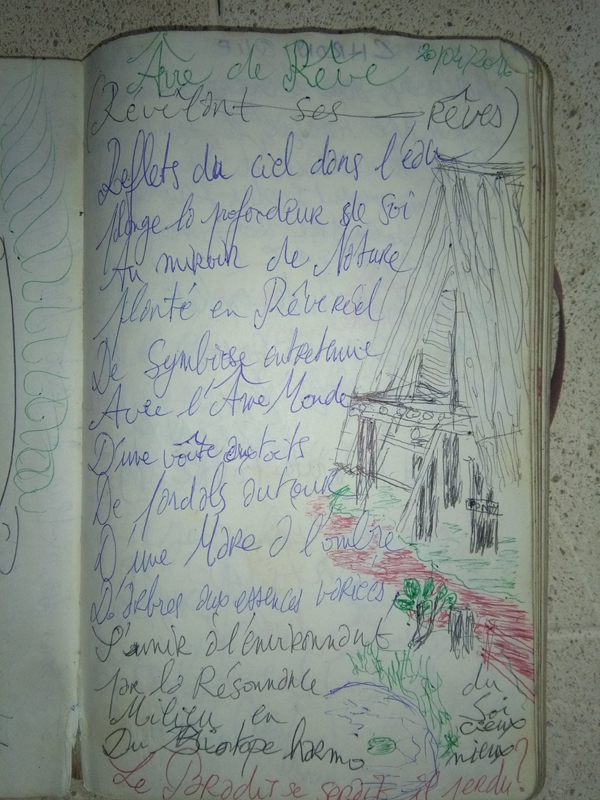 Âme de Rêve 20/04/20
(Révélant ses rêves)
Reflets du ciel dans l'eau
Plonge la profondeur de Soi
Au miroir de Nature
Planté en Rêveréel
De Symbiose entretenue
Avec l'Âme Monde
D'une voûte toits
De autour
D'une Mare à l'ombre
D'arbres aux essences variées,
S'unir à l'environnant
par la Résonnance du
Milieu en Soi
Du Biotope harmo nieux
Le Paradis se serait il perdu?